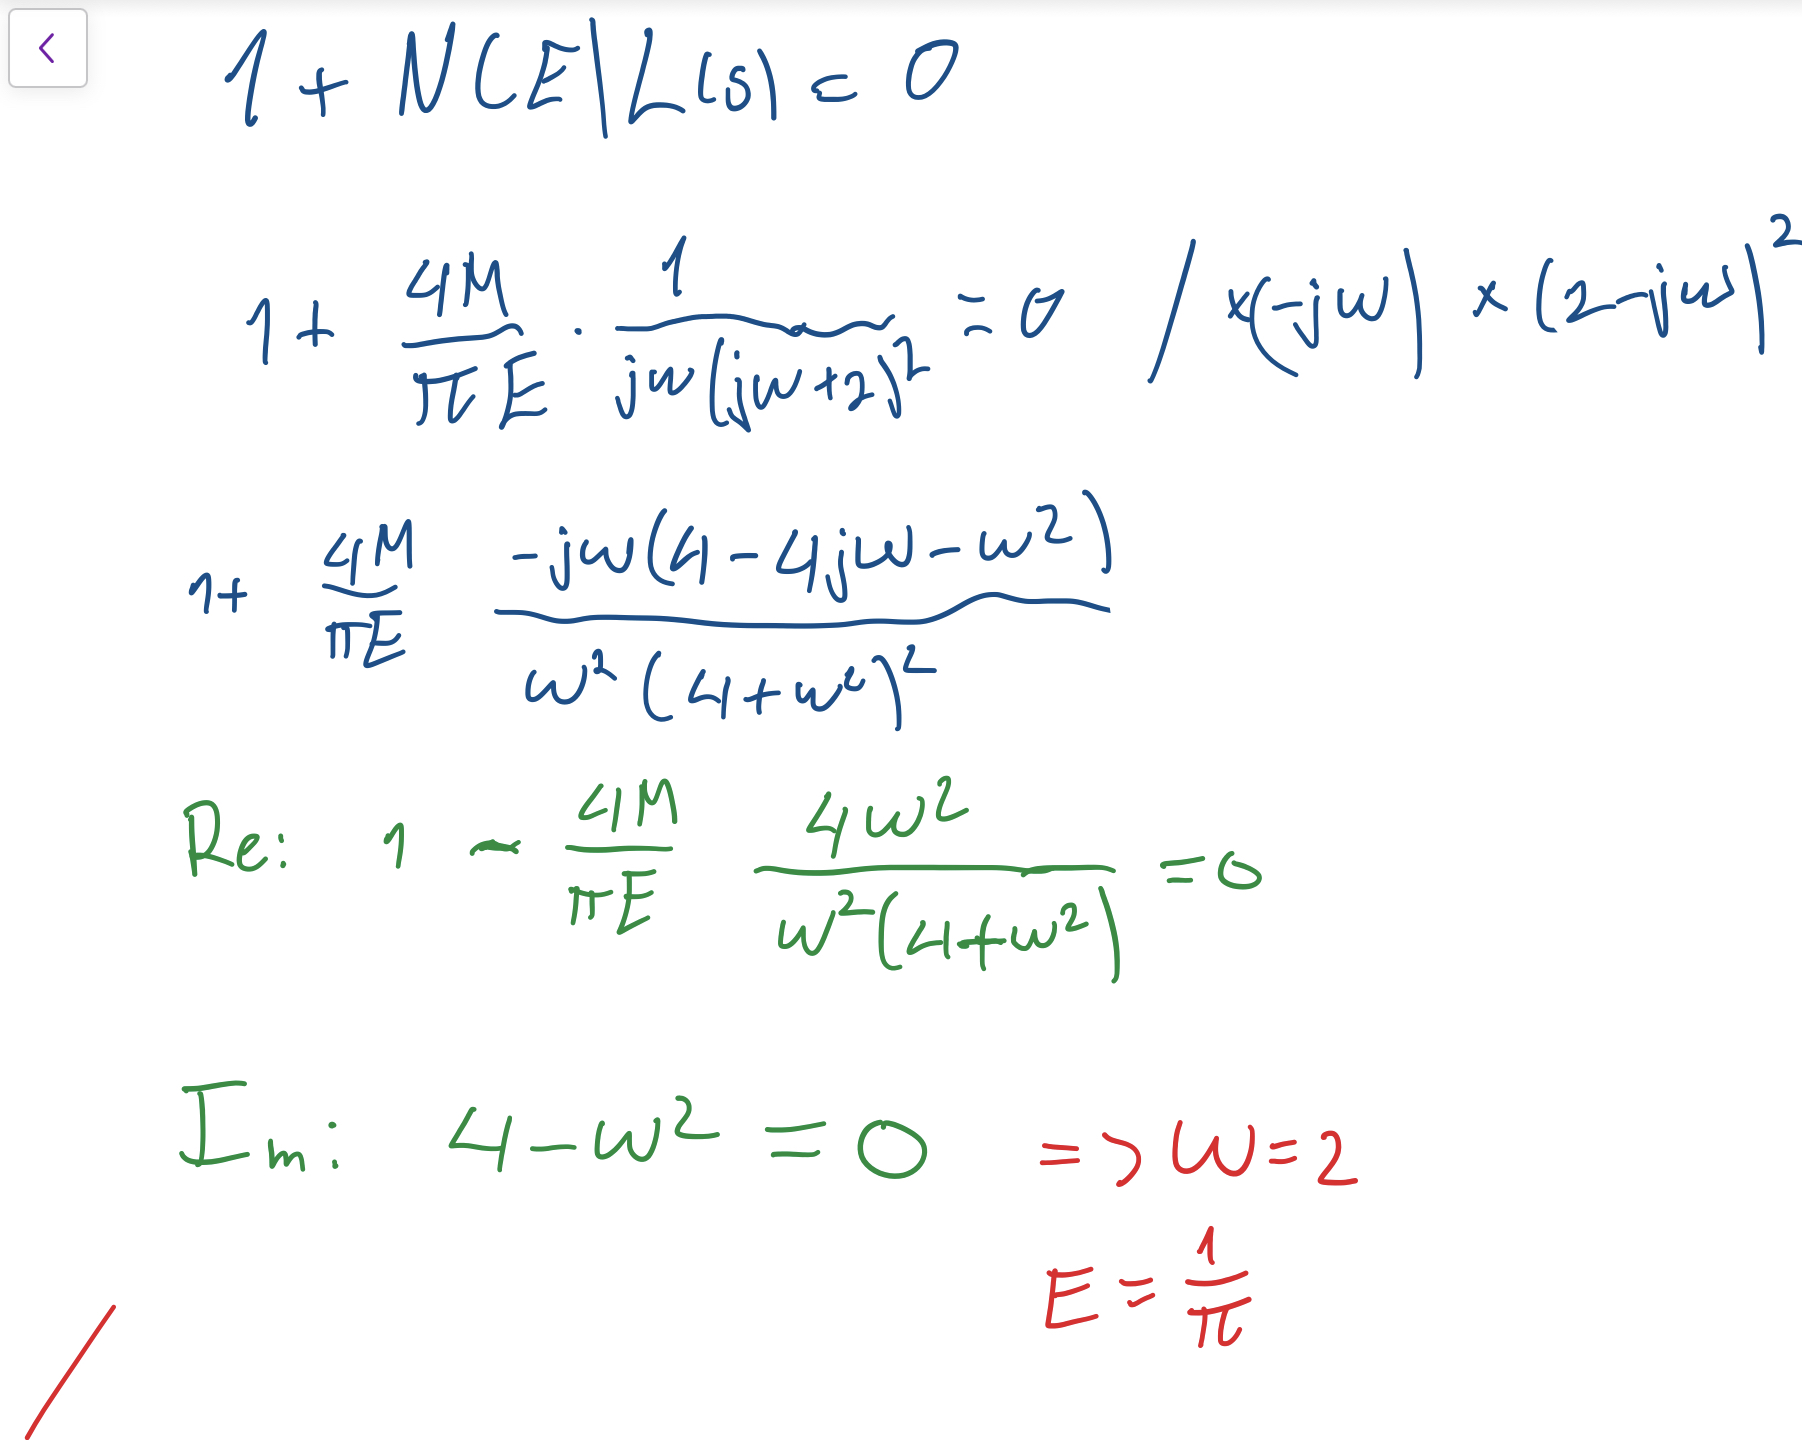 1 + N(E) L(s) = 0
1 + 4M/πE · 1/jω(jω+2)² = 0 / ×(-jω) × (2-jω)²
1+ 4M/πE -jω(4-4jω-ω²)/ω²(4+ω²)²
Re: 1 - 4M/πE 4ω²/ω²(4+ω²) = 0
Im: 4-ω² = 0 => ω=2
E = 1/π